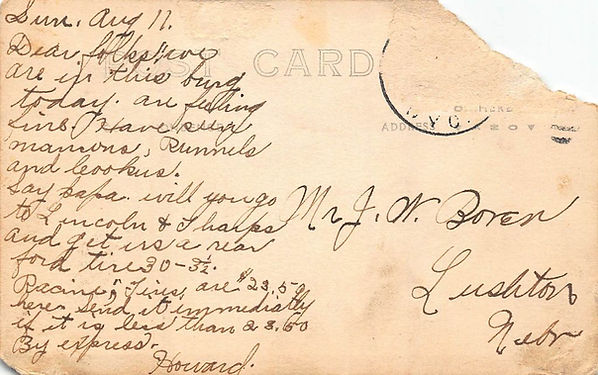 Sun. Aug 11.
Dear folks; we
are in this burg
today. are feeling
fine. Have seen
mansons, Runnels
and Cookus.
Say papa will you go
to Lincoln & Sharps
and get us a rear
ford tire 30-3½.
Racine Tires, are $23.50
here. Send it immediatly
if it is less than 23.50
By express.
Howard.
POST CARD
ADDRESS
HERE
WYO.
Mr J. W. Boren
Lushton
Nebr